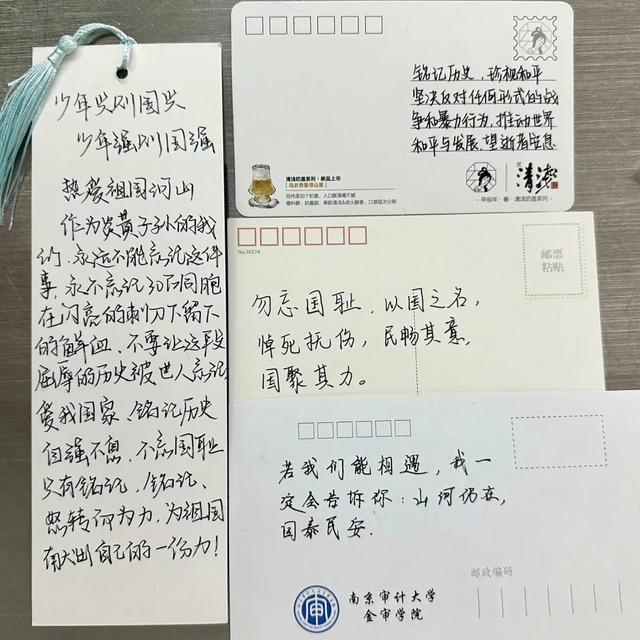 少年兴则国兴
少年强则国强
热爱祖国河山
作为炎黄子孙的我
们,永远不能忘记这件
事,永不忘记30万同胞
在闪亮的刺刀下留下
的鲜血、不要让这段
屈辱的历史被世人忘记,
爱我国家、铭记历史
自强不息、不忘国耻
只有铭记,铭记、
怒转而为力,为祖国
献出自己的一份力!
铭记历史,珍视和平
坚决反对任何形式的战
争和暴力行为,推动世界
和平与发展,望逝者安息
清浅奶蛋系列·新品上市
清浅
- 甲辰年·春·清浅奶蛋系列 -
No.50374
邮票
粘贴
勿忘国耻,以国之名,
悼死抚伤,民畅其意,
国聚其力。
若我们能相遇,我一
定会告诉你:山河仍在,
国泰民安.
邮政编码
南京审计大学
金审学院